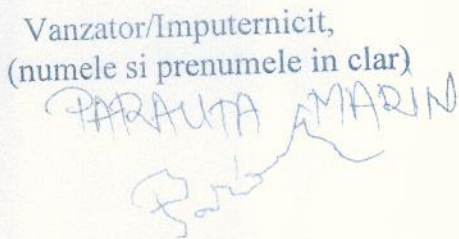 Vanzator/Imputernicit,
(numele si prenumele in clar)
PARAUTA MARIN